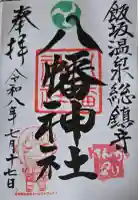 飯坂温泉総鎮守
奉拝
八幡神社
令和八年七月十七日